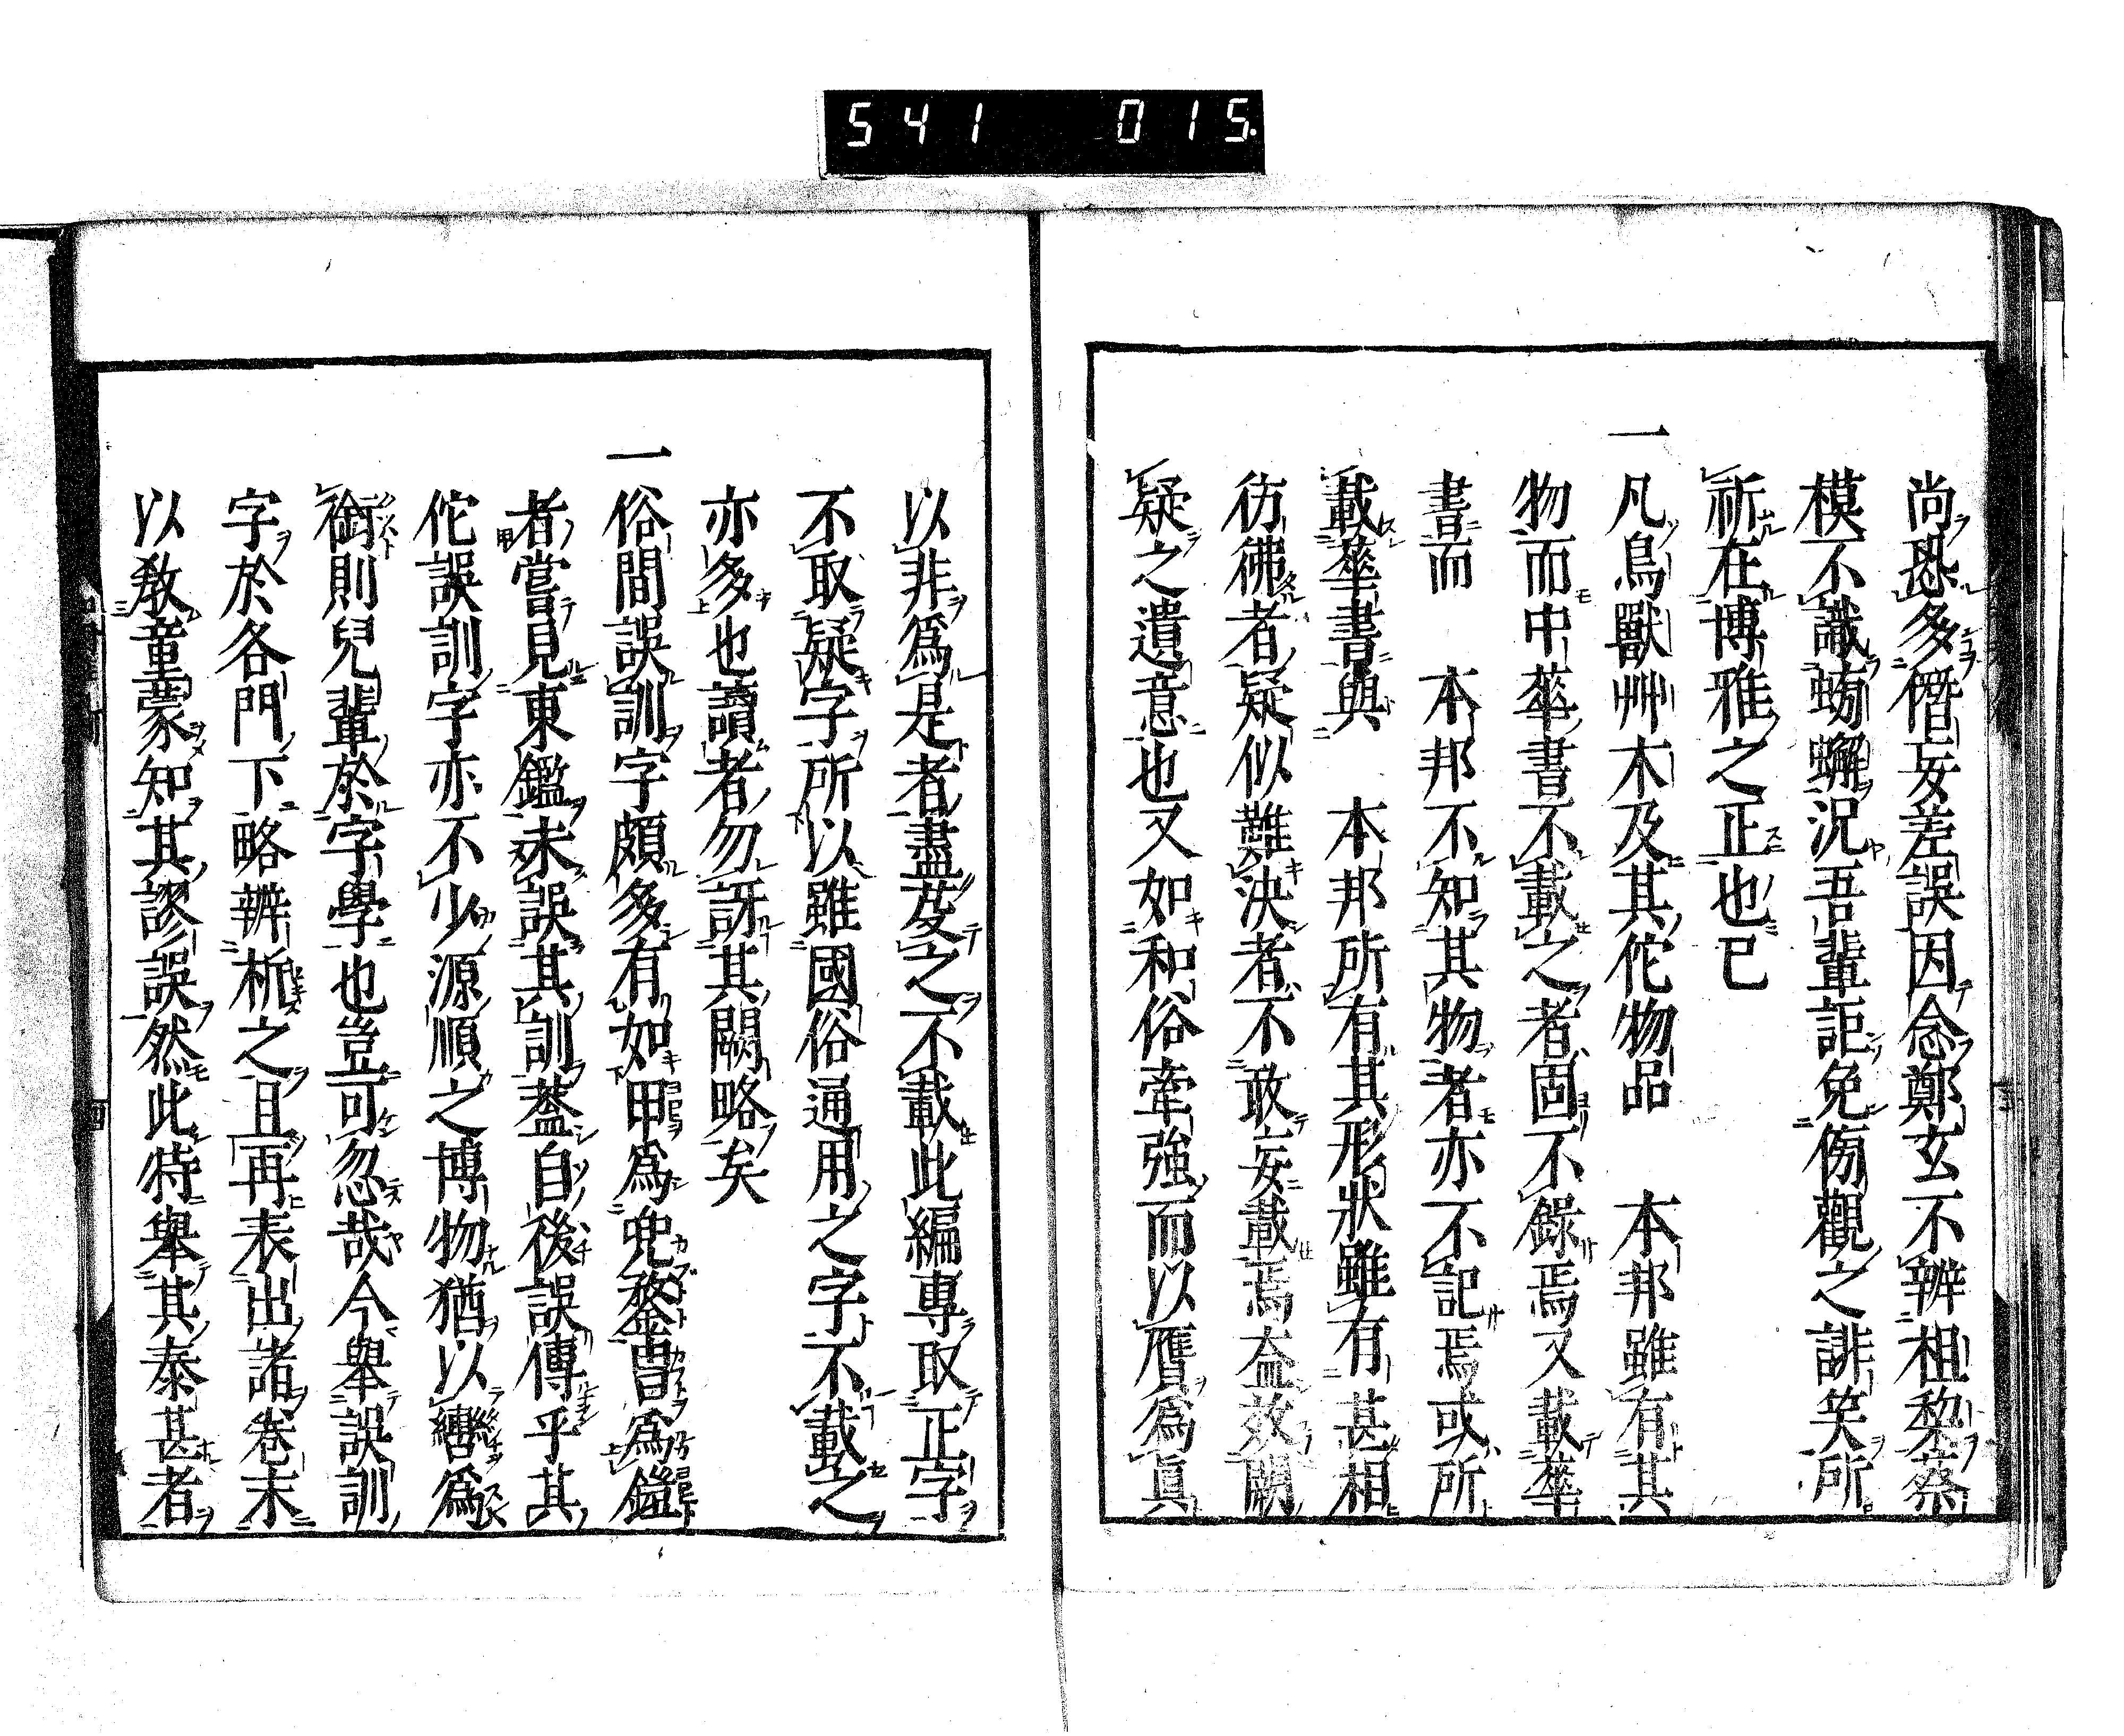 541 015
尚恐多僭妄差誤因念鄭玄不辨柤棃蔡
模不識蝤蠏況吾輩詎免傍觀之誹笑所
祈在博雅之正也已
一凡鳥獸艸木及其佗物品 本邦雖有其
物而中華書不載之者固不錄焉又載華
書而 本邦不知其物者亦不記焉或所
載華書與 本邦所有其形狀雖有甚相
彷彿者疑似難決者不敢妄載焉益效闕
疑之遺意也又如和俗牽強而以贋爲眞
以非爲是者盡芟之不載此編專取正字
不取疑字所以雖國俗通用之字不載之
亦多也讀者勿訝其闕略矣
一俗間誤訓字頗多有如甲爲兜鍪冑爲鎧
者嘗見東鑑未誤其訓蓋自後誤傳乎其
佗誤訓字亦不少源順之博物猶以轡爲
銜則兒輩於字學也豈可忽哉今舉誤訓
字於各門下略辨析之且再表出諸卷末
以敎童蒙知其謬誤然此特舉其泰甚者